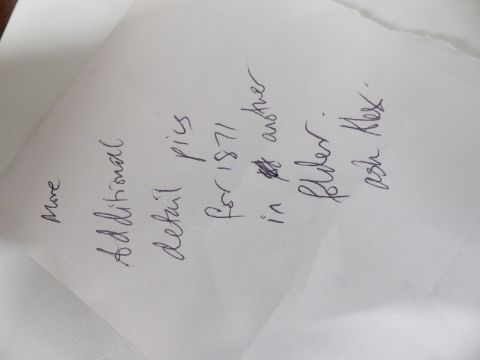 More
Additional
detail pics
for 1871
in another
folder.
ask Alex.